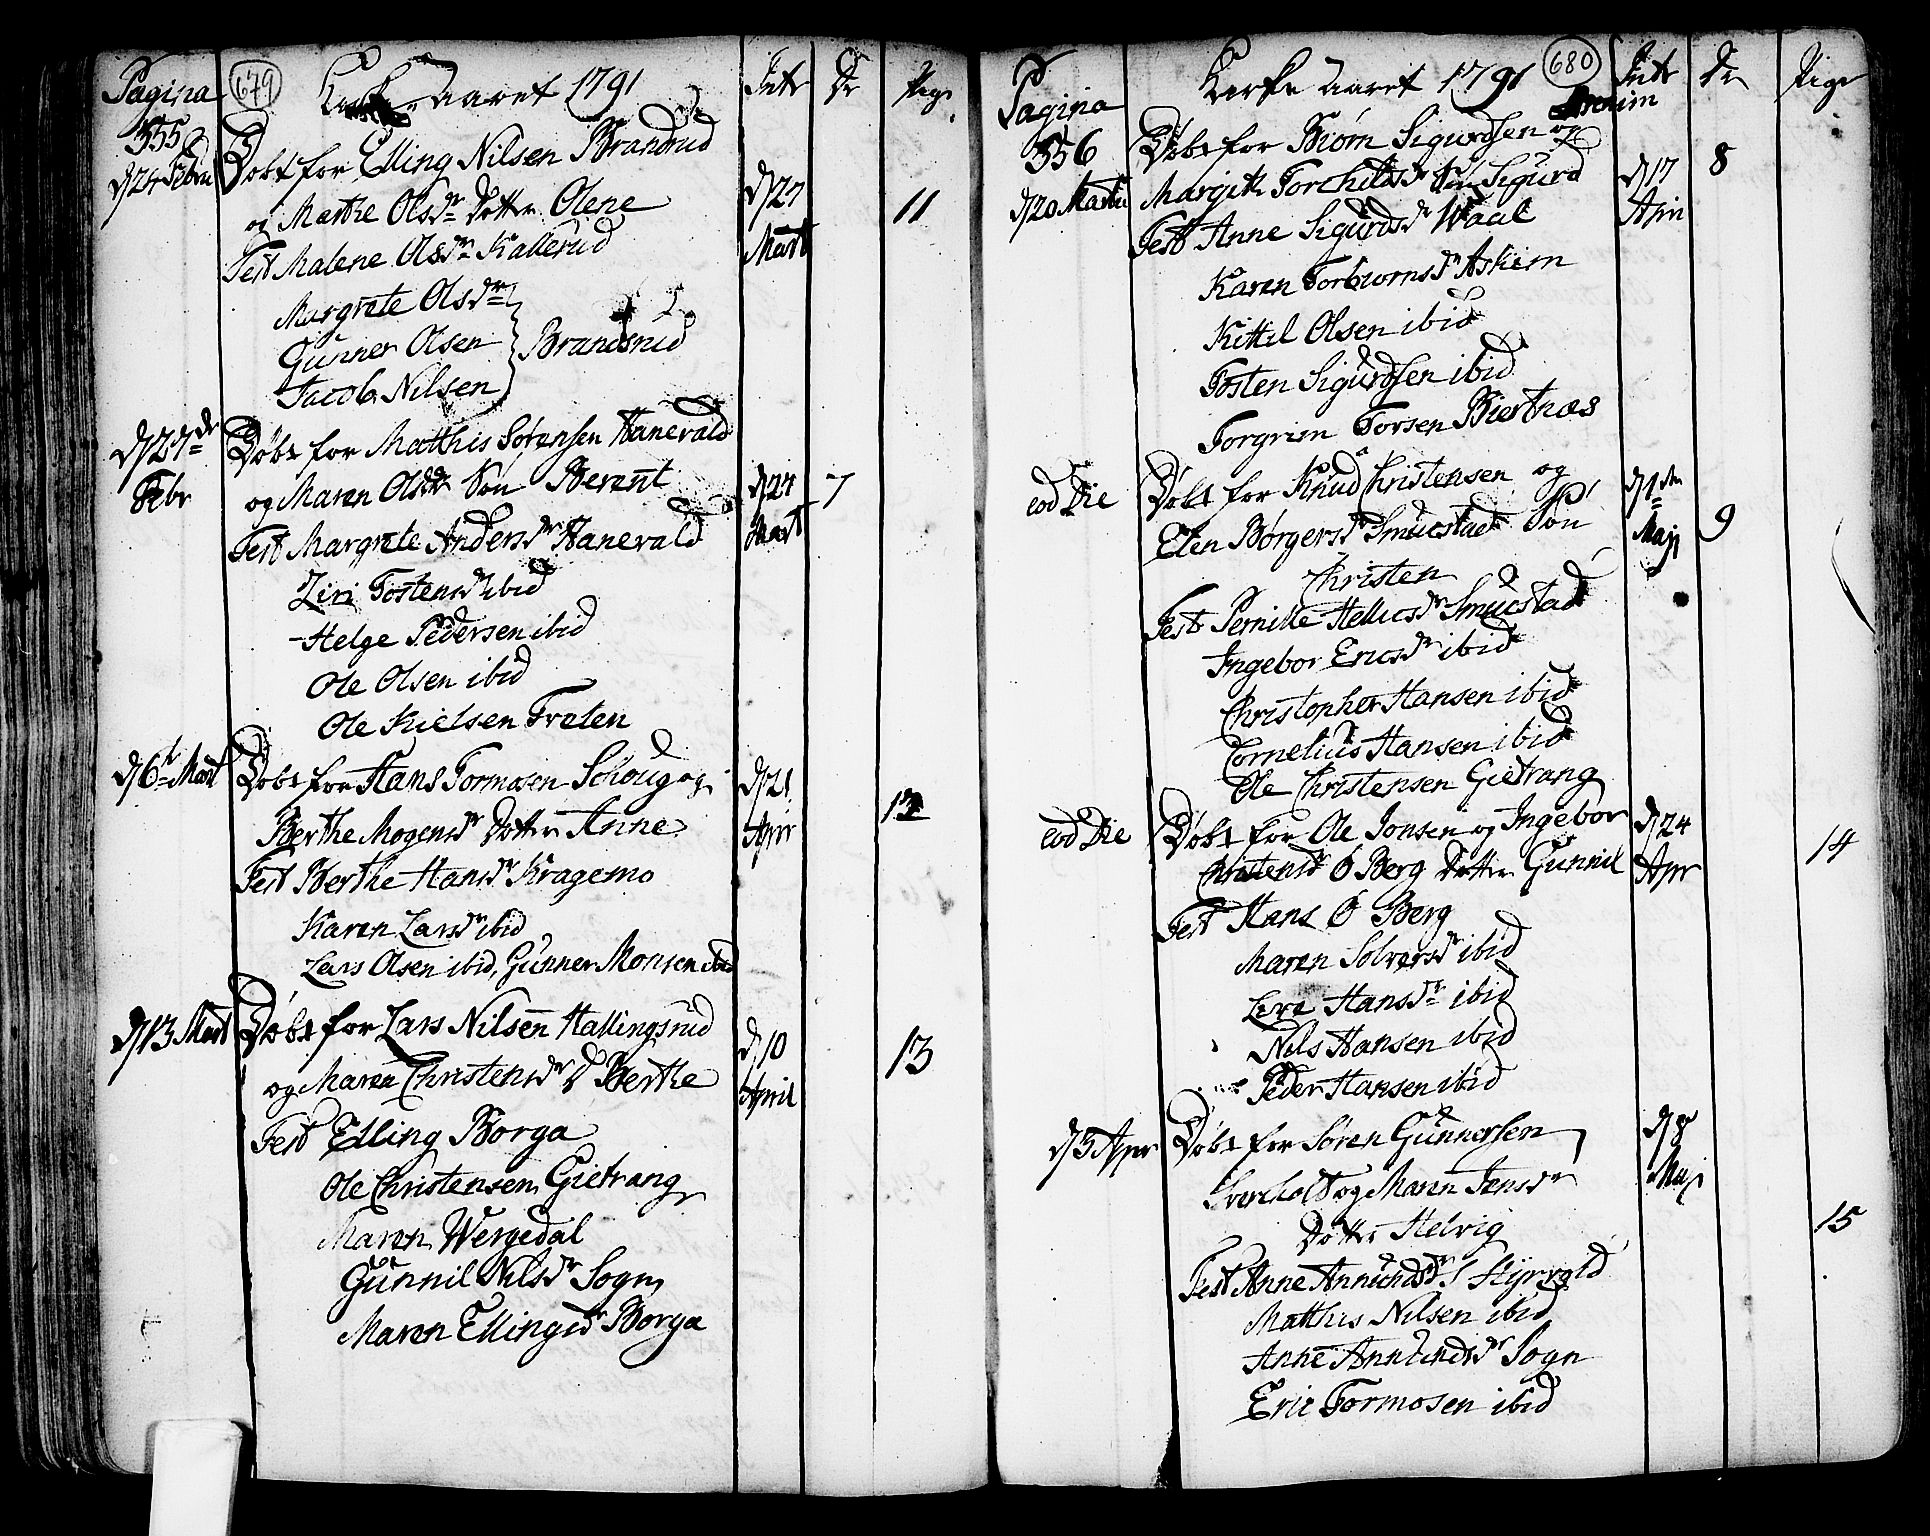 Pagina 679 Kirke Aaret 1791 Intr Dr Pige
555
d 24 Febru Døbt for Elling Nilsen Brandrud
og Marthe Olsdr Dotter Olene d 27 Mart 11
Test Malene Olsdr Kallerud
Margrete Olsdr
Gunner Olsen Brandsrud
Jacob Nilsen
d 27de Febr Døbt for Matthis Sørensen Hanevald
og Maren Olsdr Søn Berent d 24 Mart 7
Test Margrete Andersdr Hanevald
Ziri Tostensdr ibid
Helge Pedersen ibid
Ole Olsen ibid
Ole Kielsen Traten
d 6te Mart Døbt for Hans Tormosen Schoug og d 21 Aprr
Berthe Mogensdr Dotter Anne 12
Test Berthe Hansdr Kragemo
Karen Larsdr ibid
Lars Olsen ibid, Gunner Monsen ibid
d 13 Mart Døbt for Lars Nilsen Hallingsrud
og Maren Christensdr D Berthe d 10 April 13
Test Elling Borga
Ole Christensen Gietrang
Maren Wergedal
Gunnil Nilsdr Sogn
Maren Ellingsdr Borga
Pagina Kirke aaret 1791 680 Intr Dr Pige
556 Døbt for Biørn Sigurdsen og
d 20 Martii Margith Torchildsdr Søn Sigurd d 17 Apr 8
Test Anne Sigurdsdr Waal
Karen Torbiornsdr Askiem
Kittil Olsen ibid
Tosten Sigurdsen ibid
Torgrim Torsen Biertnæs
eod Die Døbt for Knud Christensen og d 1ste Maji
Elen Børgersdr Smucstad Søn 9
Christen
Test Pernille Hellicsdr Smucstad
Ingebor Ericsdr ibid
Christopher Hansen ibid
Cornelius Hansen ibid
Ole Christensen Gietrang
eod Die Døbt for Ole Jonsen og Ingebor d 24 Apr
Christensdr Ø Berg Dotter Gunnil 14
Test Hans Ø Berg
Maren Solversdr ibid
Hansdr ibid
Nils Hansen ibid
Peder Hansen ibid
d 3 Apr Døbt for Søren Gunnersen d 8 Maji
og Maren Jensdr
Dotter Helvig 15
Test Anne Annundsdr Styrvold
Matthis Nilsen ibid
Anne Annundsdr Sogn
Eric Tormosen ibid